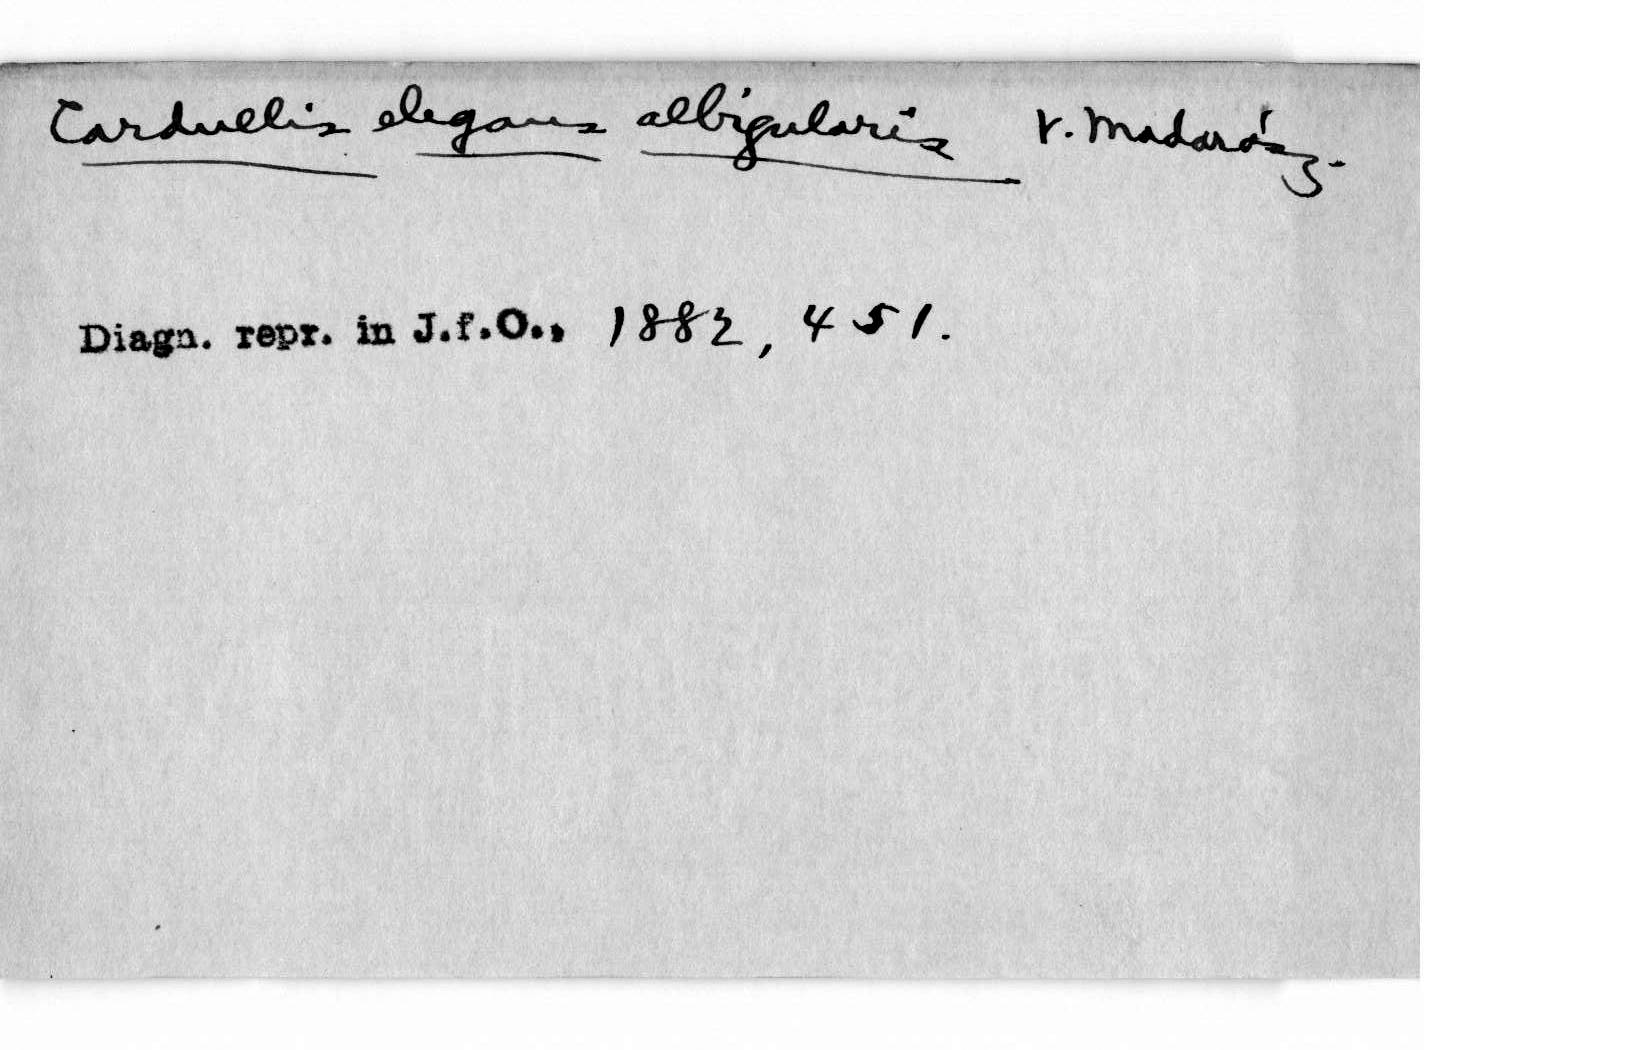 Carduelis elegans albigularis v. Madarász.
Diagn. repr. in J.f.O., 1882, 451.